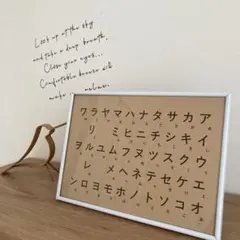 Look up at the sky
and take a deep breath.
Close your eyes...
Comfortable breeze will
make
ワラヤマハナタサカア
リ ミヒニチシキイ
ヲルユムフヌツスクウ
レ メヘネテセケエ
ンロヨモホノトソコオ